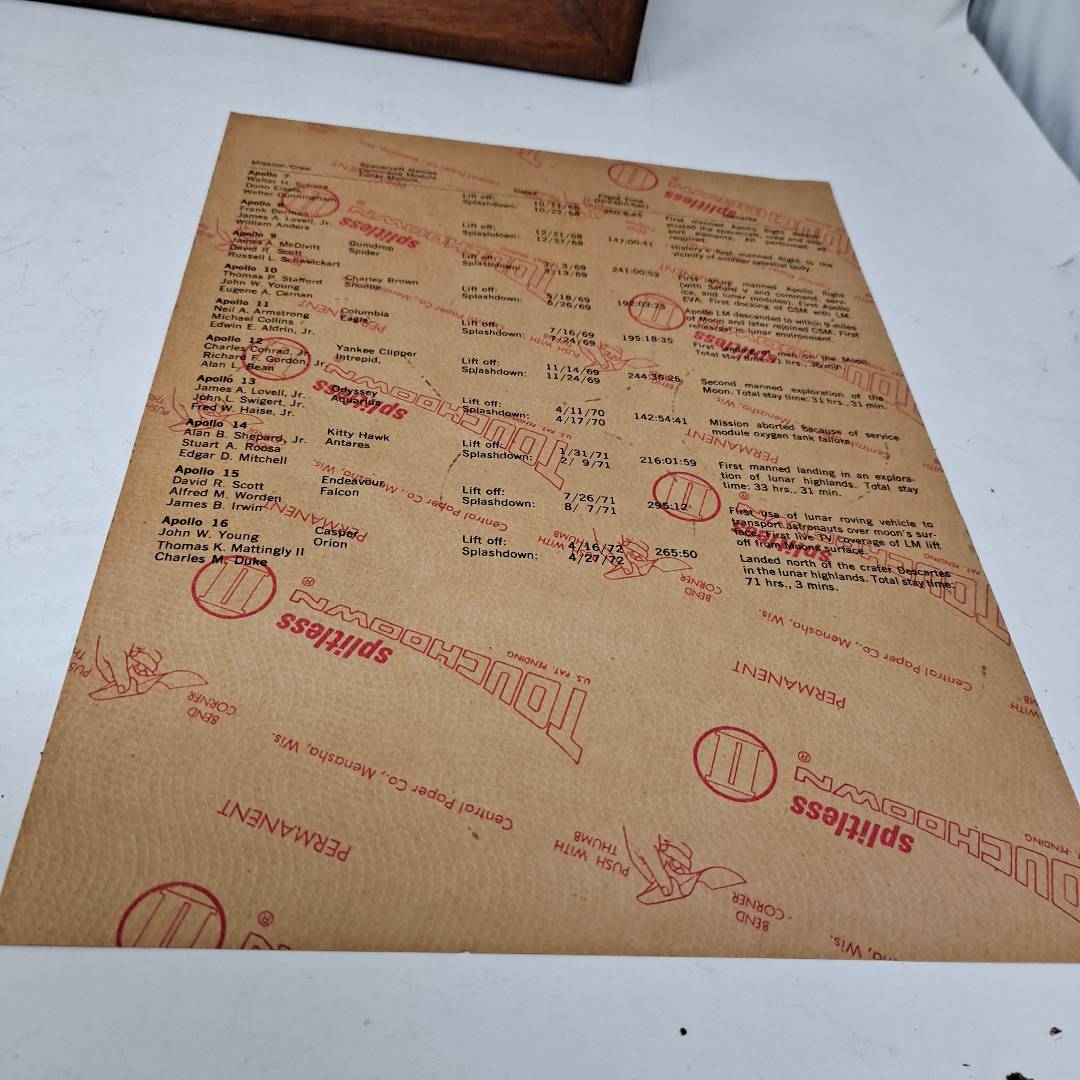 Mission/Crew Spacecraft Names Dates Flight Time
Command Module (Hrs:Min:Sec)
Lunar Module
Apollo 7
Walter H. Schirra Lift off: 10/11/68 260:8:45
Donn Eisele Splashdown: 10/22/68
Walter Cunningham
First manned Apollo flight
strated the spacecraft, crew and
port elements. All performed
required.
Apollo 8
Frank Borman Lift off: 12/21/68 147:00:41
James A. Lovell, Jr. Splashdown: 12/27/68
William Anders
History's first manned flight to the
vicinity of another celestial body.
Apollo 9
James A. McDivitt Gumdrop Lift off: 3/ 3/69 241:00:53
David R. Scott Spider Splashdown: 3/13/69
Russell L. Schweickart
First all-up manned Apollo flight
(with Saturn V and command, serv-
ice, and lunar modules). First Apollo
EVA. First docking of CSM with LM.
Apollo 10
Thomas P. Stafford Charley Brown Lift off: 5/18/69 192:03:23
John W. Young Snoopy Splashdown: 5/26/69
Eugene A. Cernan
Apollo LM descended to within 9 miles
of Moon and later rejoined CSM. First
rehearsal in lunar environment.
Apollo 11
Neil A. Armstrong Columbia Lift off: 7/16/69 195:18:35
Michael Collins Eagle Splashdown: 7/24/69
Edwin E. Aldrin, Jr.
First landing of men on the Moon.
Total stay time: 21 hrs., 36 min.
Apollo 12
Charles Conrad, Jr. Yankee Clipper Lift off: 11/14/69 244:36:25
Richard F. Gordon, Jr. Intrepid, Splashdown: 11/24/69
Alan L. Bean
Second manned exploration of the
Moon. Total stay time: 31 hrs., 31 min.
Apollo 13
James A. Lovell, Jr. Odyssey Lift off: 4/11/70 142:54:41
John L. Swigert, Jr. Aquarius Splashdown: 4/17/70
Fred W. Haise, Jr.
Mission aborted because of service
module oxygen tank failure.
Apollo 14
Alan B. Shepard, Jr. Kitty Hawk Lift off: 1/31/71 216:01:59
Stuart A. Roosa Antares Splashdown: 2/ 9/71
Edgar D. Mitchell
First manned landing in an explora-
tion of lunar highlands. Total stay
time: 33 hrs., 31 min.
Apollo 15
David R. Scott Endeavour Lift off: 7/26/71 295:12
Alfred M. Worden Falcon Splashdown: 8/ 7/71
James B. Irwin
First use of lunar roving vehicle to
transport astronauts over moon's sur-
face. First live TV coverage of LM lift
off from Moons surface.
Apollo 16
John W. Young Casper Lift off: 4/16/72 265:50
Thomas K. Mattingly II Orion Splashdown: 4/27/72
Charles M. Duke
Landed north of the crater Descartes
in the lunar highlands. Total stay time:
71 hrs., 3 mins.
splitless
TOUCHDOWN II ®
U.S. PAT. PENDING
PUSH WITH THUMB
BEND CORNER
Central Paper Co., Menasha, Wis.
PERMANENT
splitless
TOUCHDOWN II ®
PENDING
PUSH WITH THUMB
BEND CORNER
Central Paper Co., Menasha, Wis.
PERMANENT